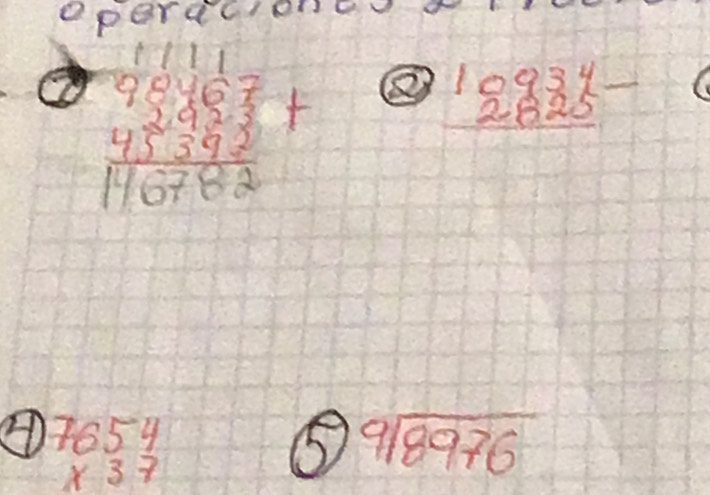 operaciones
1 1 1 1
1 98467 +
2923
45392
146782
2 10934 -
2825
4 7654
x 37
5 9|8976